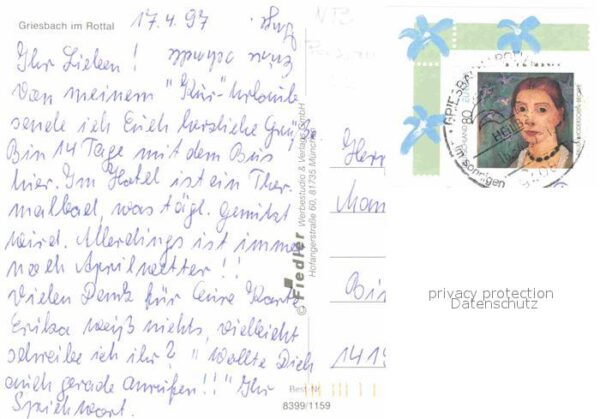 Griesbach im Rottal
17.4.97
Ihr Lieben!
Von meinem "Kur"-Urlaub
sende ich Euch herzliche Grüße
Bin 14 Tage mit dem Bus
hier. Im Hotel ist ein Ther-
malbad, was tägl. genützt
wird. Allerdings ist immer
noch Aprilwetter!!
Vielen Dank für Eure Karte
Erika weiß nichts, vielleicht
schreibe ich ihr? "Wollte Dich
auch gerade anrufen!!" Ihr
Sprichwort.
© Fiedler Werbestudio & Verlags GmbH
Hofangerstraße 60, 81735 München
Best-Nr.
8399/1159
Herr
Bin
1419
80
im sonnigen
privacy protection
Datenschutz